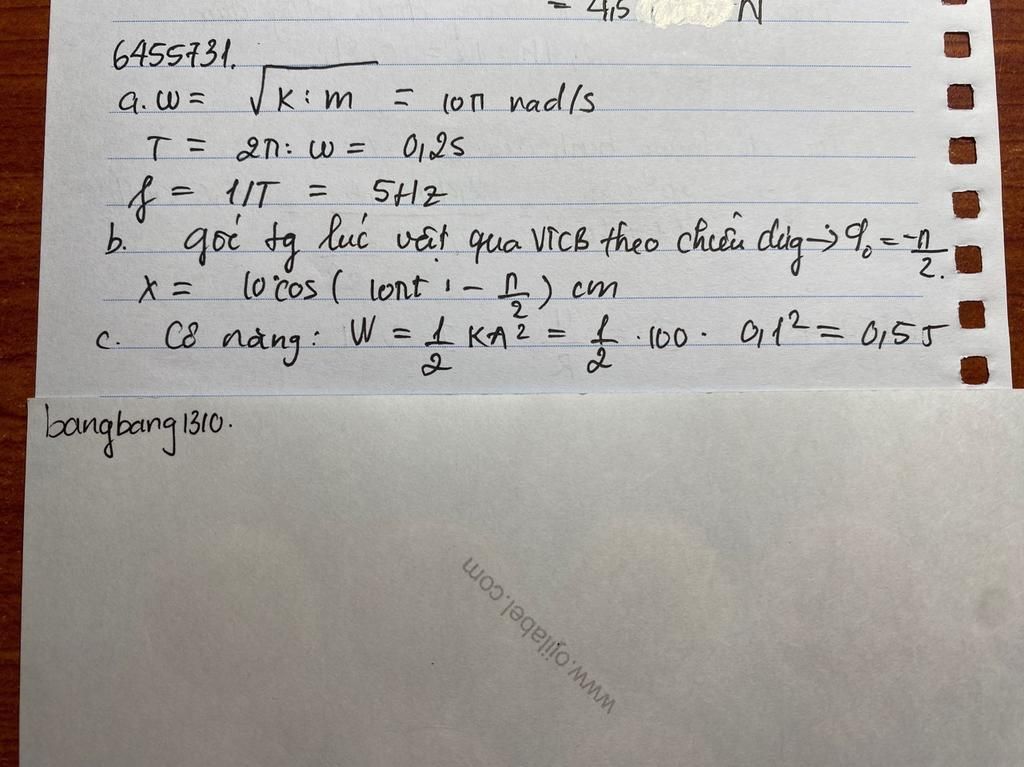 = 4,5 N
6455731.
a. ω = √K : m = 10π rad/s
T = 2π : ω = 0,2s
f = 1/T = 5Hz
b. gốc tg lúc vật qua VTCB theo chiều dương → φ₀ = -π/2.
x = 10·cos( 10πt - π/2 ) cm
c. Cơ năng : W = 1/2 KA² = 1/2 · 100 · 0,1² = 0,5J
bangbang1310.
www.ojilabel.com